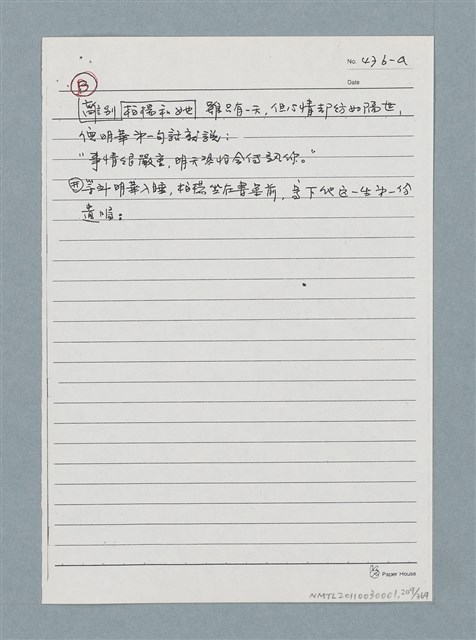 No. 436-a
Date
B
離別 柏楊和她 雖只有一天，但心情卻彷如隔世，
但明華第一句話就說：
"事情很嚴重，明天恐怕會傳訊你。"
等到明華入睡，柏楊坐在書桌前，寫下他這一生第一份
遺囑：
Paper House
NMTL20110030001,209/369